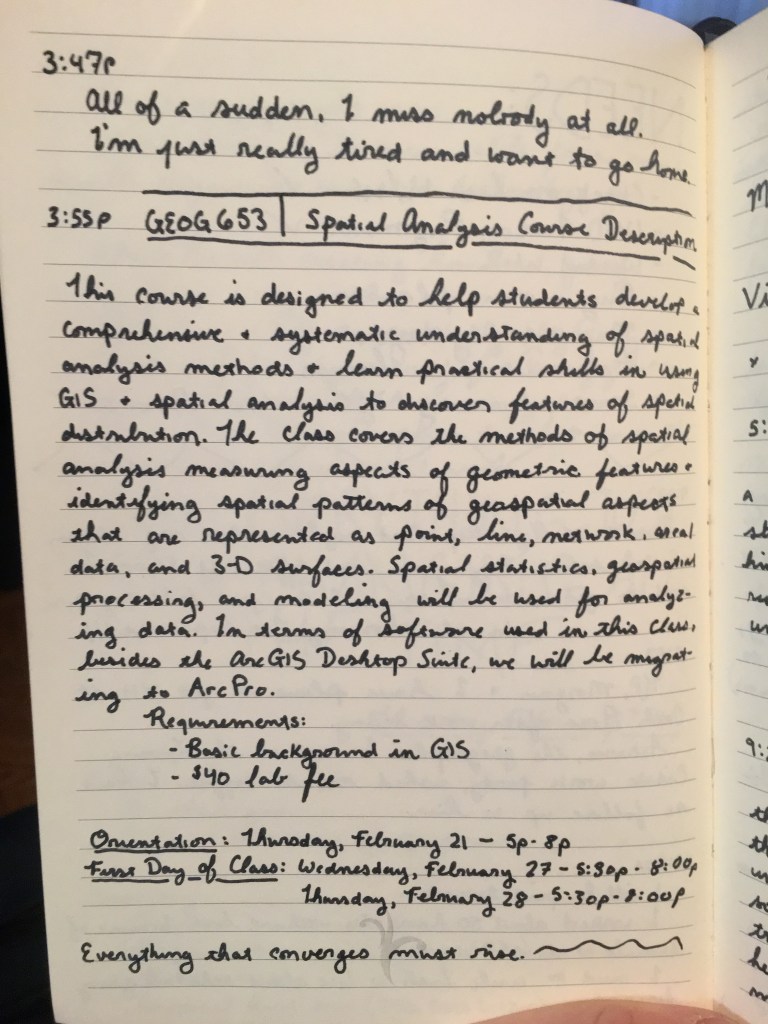 3:47p
All of a sudden, I miss nobody at all.
I'm just really tired and want to go home.
3:55p GEOG 653 | Spatial Analysis Course Description
This course is designed to help students develop a
comprehensive + systematic understanding of spatial
analysis methods + learn practical skills in using
GIS + spatial analysis to discover features of spatial
distribution. The class covers the methods of spatial
analysis measuring aspects of geometric features +
identifying spatial patterns of geospatial aspects
that are represented as point, line, network, areal
data, and 3-D surfaces. Spatial statistics, geospatial
processing, and modeling will be used for analyz-
ing data. In terms of software used in this class,
besides the ArcGIS Desktop Suite, we will be migrat-
ing to ArcPro.
Requirements:
- Basic background in GIS
- $40 lab fee
Orientation: Thursday, February 21 - 5p-8p
First Day of Class: Wednesday, February 27 - 5:30p - 8:00p
Thursday, February 28 - 5:30p-8:00p
Everything that converges must rise.
Vi
5:
A
9: